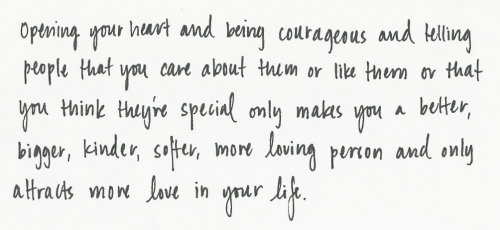 Opening your heart and being courageous and telling
people that you care about them or like them or that
you think they're special only makes you a better,
bigger, kinder, softer, more loving person and only
attracts more love in your life.